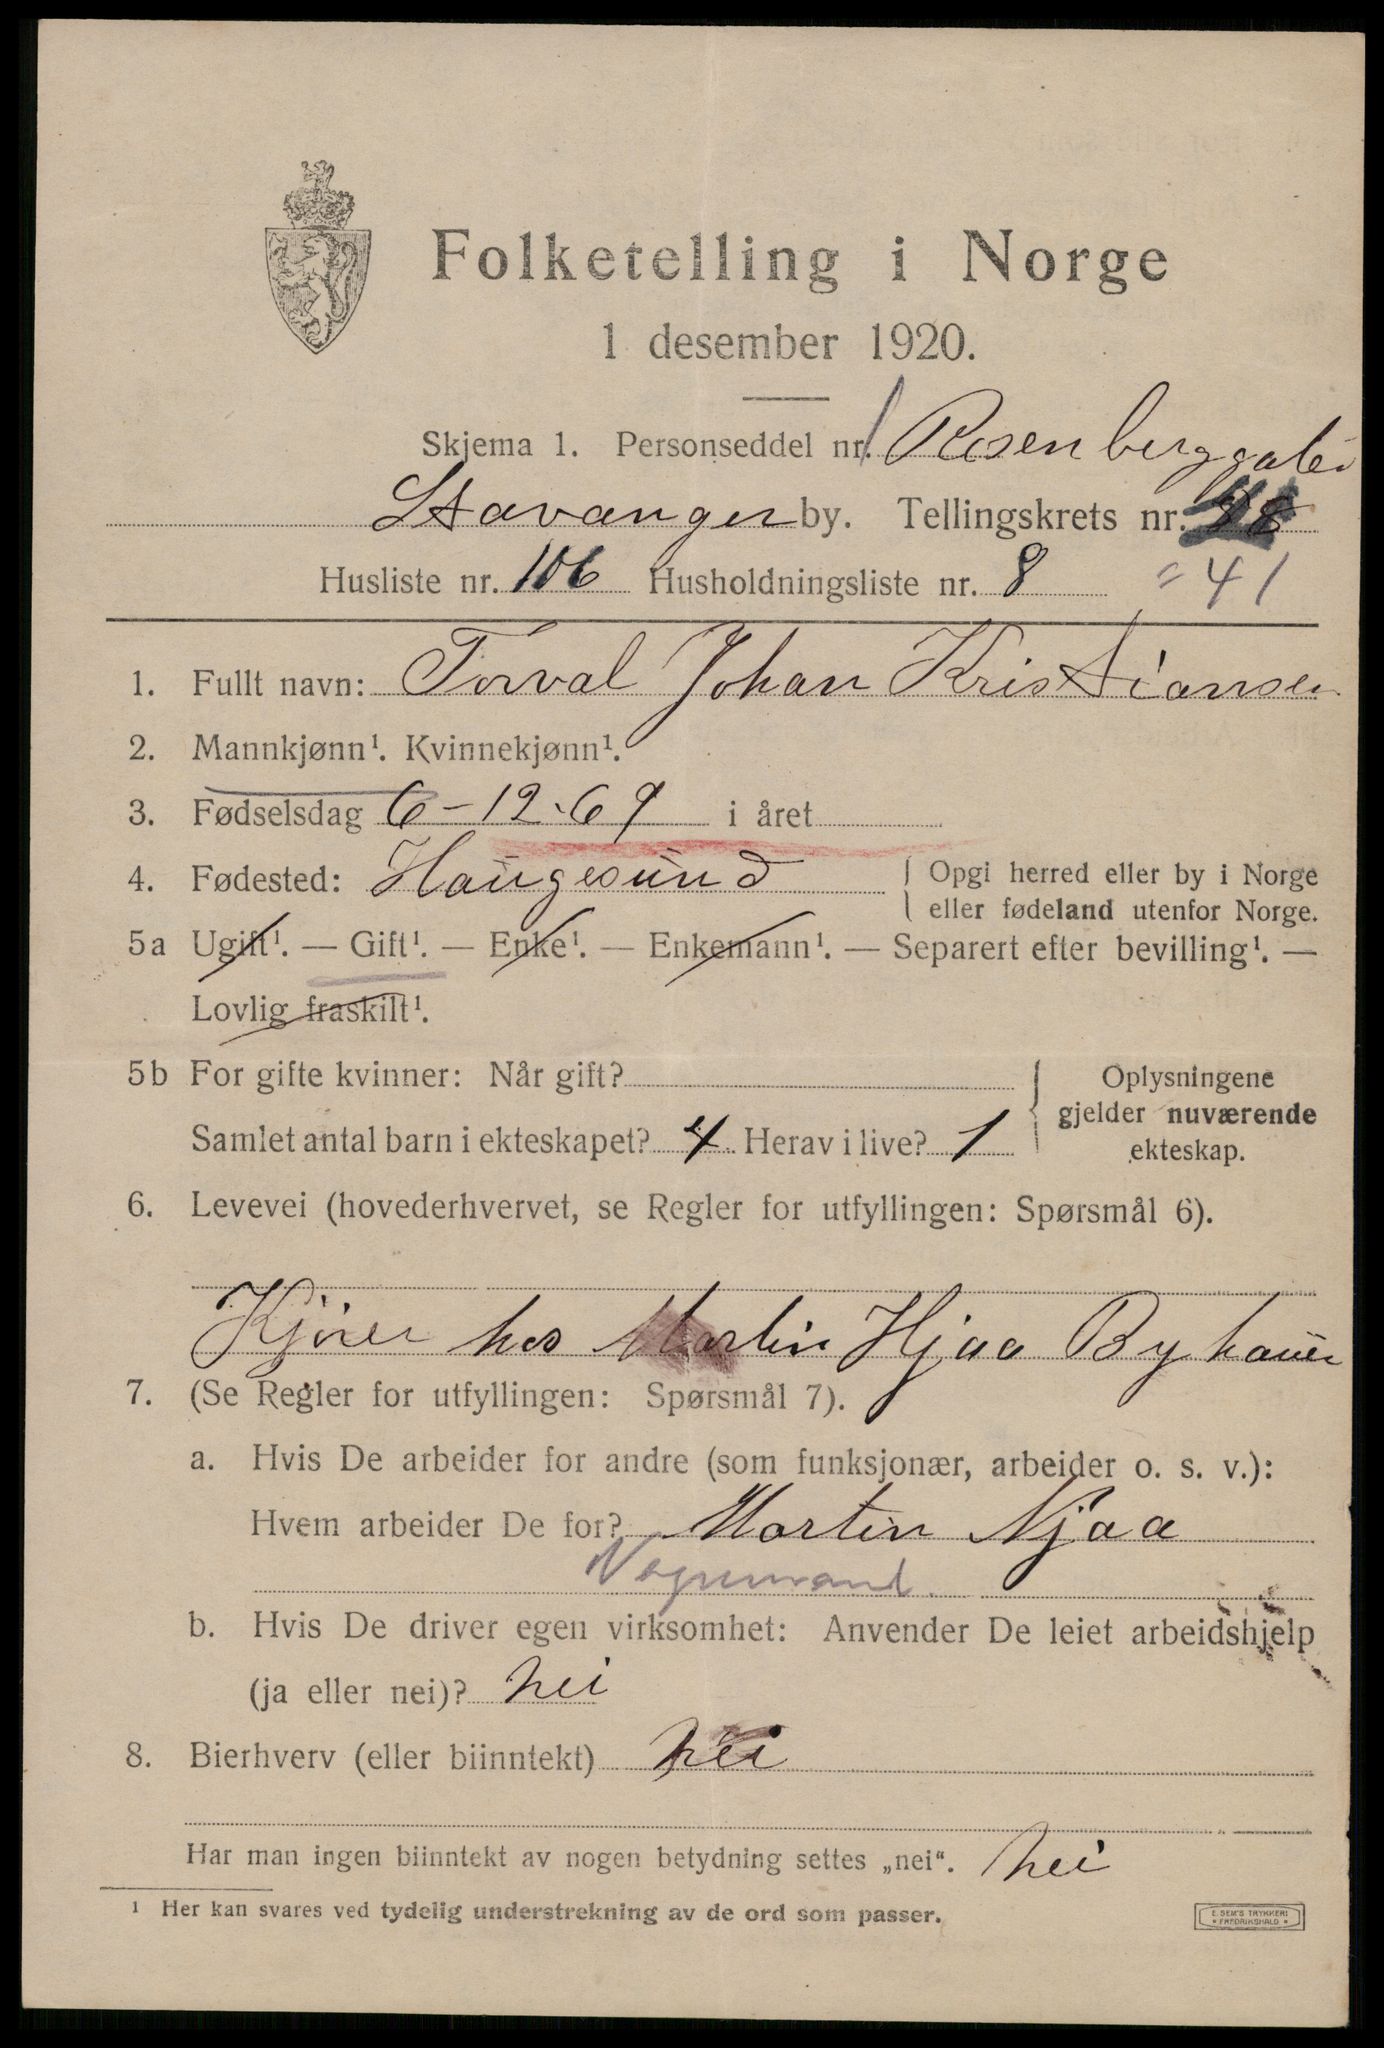 Folketelling i Norge
1 desember 1920.
Skjema 1. Personseddel nr. 1 Rosenberggaten
Stavanger by. Tellingskrets nr.
= 41
Husliste nr. 106 Husholdningsliste nr. 8
1. Fullt navn: Torval Johan Kristiansen
2. Mannkjønn¹. Kvinnekjønn¹.
3. Fødselsdag 6-12-69 i året
4. Fødested: Haugesund { Opgi herred eller by i Norge
eller fødeland utenfor Norge.
5a Ugift¹. — Gift¹. — Enke¹. — Enkemann¹. — Separert efter bevilling¹. —
Lovlig fraskilt¹.
5b For gifte kvinner: Når gift?
Samlet antal barn i ekteskapet? 4 Herav i live? 1
{ Oplysningene
gjelder nuværende
ekteskap.
6. Levevei (hovederhvervet, se Regler for utfyllingen: Spørsmål 6).
Kjører hos Martin Hjaa
7. (Se Regler for utfyllingen: Spørsmål 7).
a. Hvis De arbeider for andre (som funksjonær, arbeider o. s. v.):
Hvem arbeider De for? Martin Njaa
Vognmand.
b. Hvis De driver egen virksomhet: Anvender De leiet arbeidshjelp
(ja eller nei)? nei
8. Bierhverv (eller biinntekt) nei
Har man ingen biinntekt av nogen betydning settes „nei“. nei
¹ Her kan svares ved tydelig understrekning av de ord som passer.
E. SEM'S TRYKKERI
* FREDRIKSHALD *